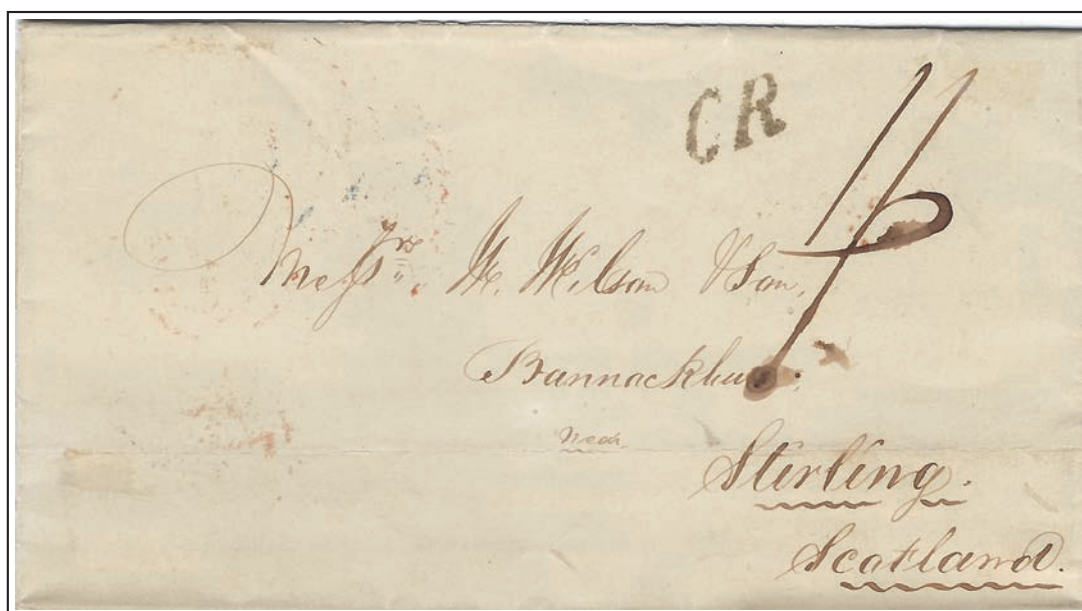 CR
1/6
Messrs. W. Wilson & Son,
Bannockburn.
Near
Stirling.
Scotland.